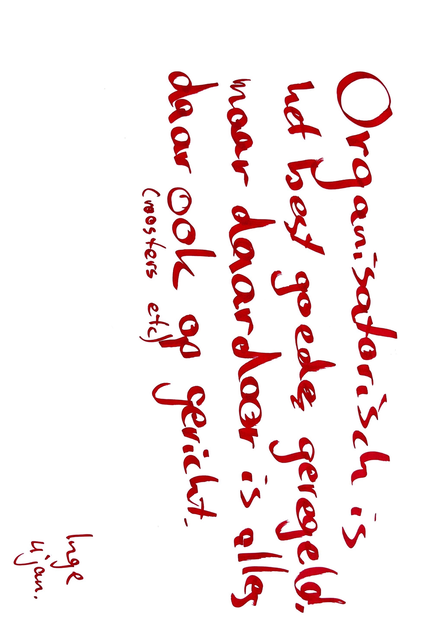 Organisatorisch is
het best goede geregeld,
maar daardoor is alles
daar ook op gericht.
(roosters etc)
Inge
4 jan.